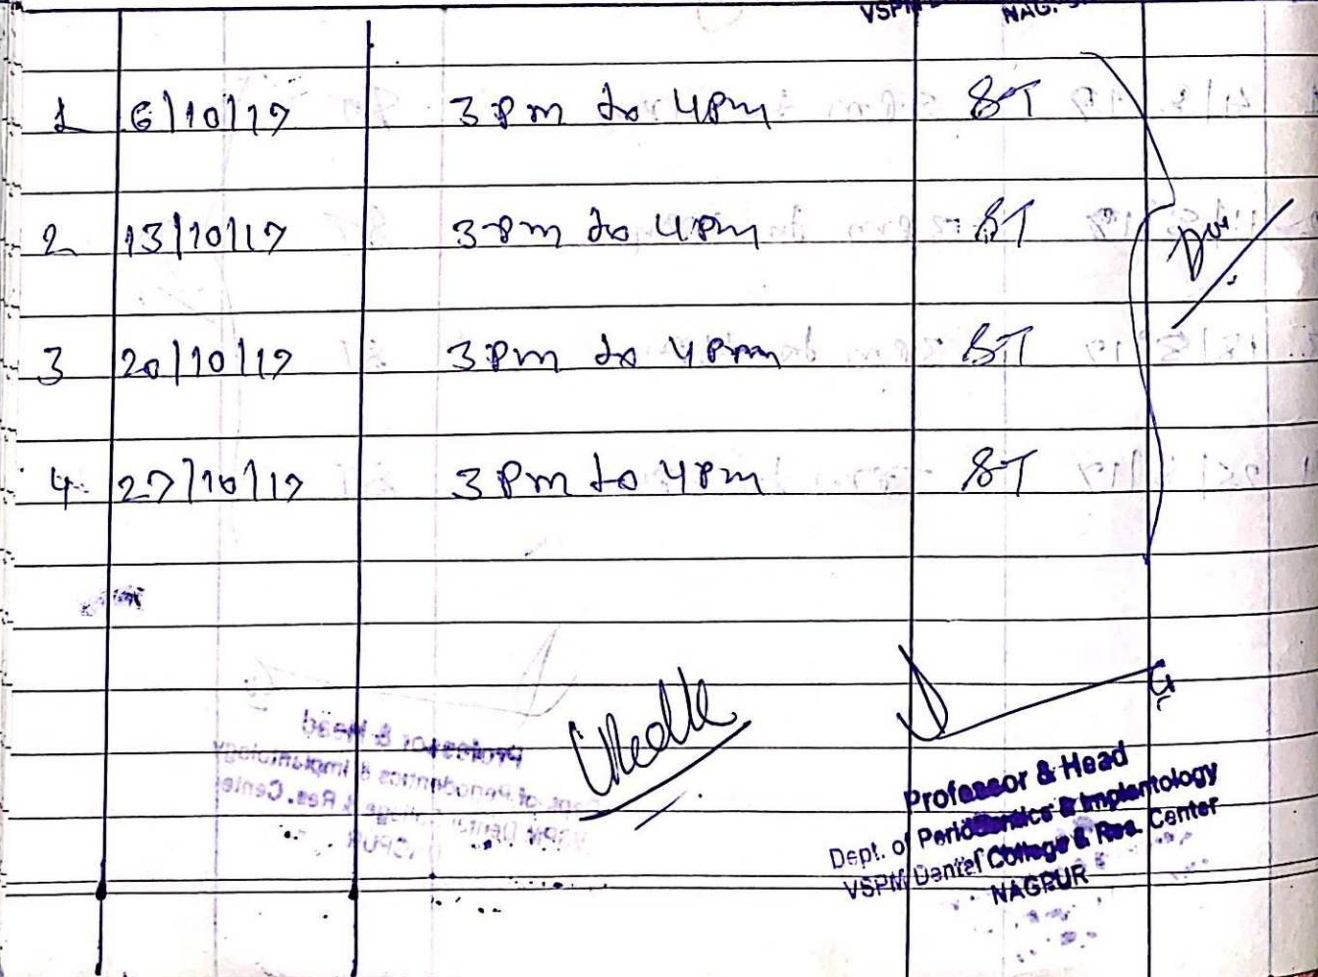 1 6/10/17 3 Pm to 4 Pm ST
2 13/10/17 3 Pm to 4 Pm ST
3 20/10/17 3 Pm to 4 Pm ST
4 27/10/17 3 Pm to 4 Pm ST
Professor & Head
Dept. of Periodontics & Implantology
VSPM Dental College & Res. Center
NAGPUR